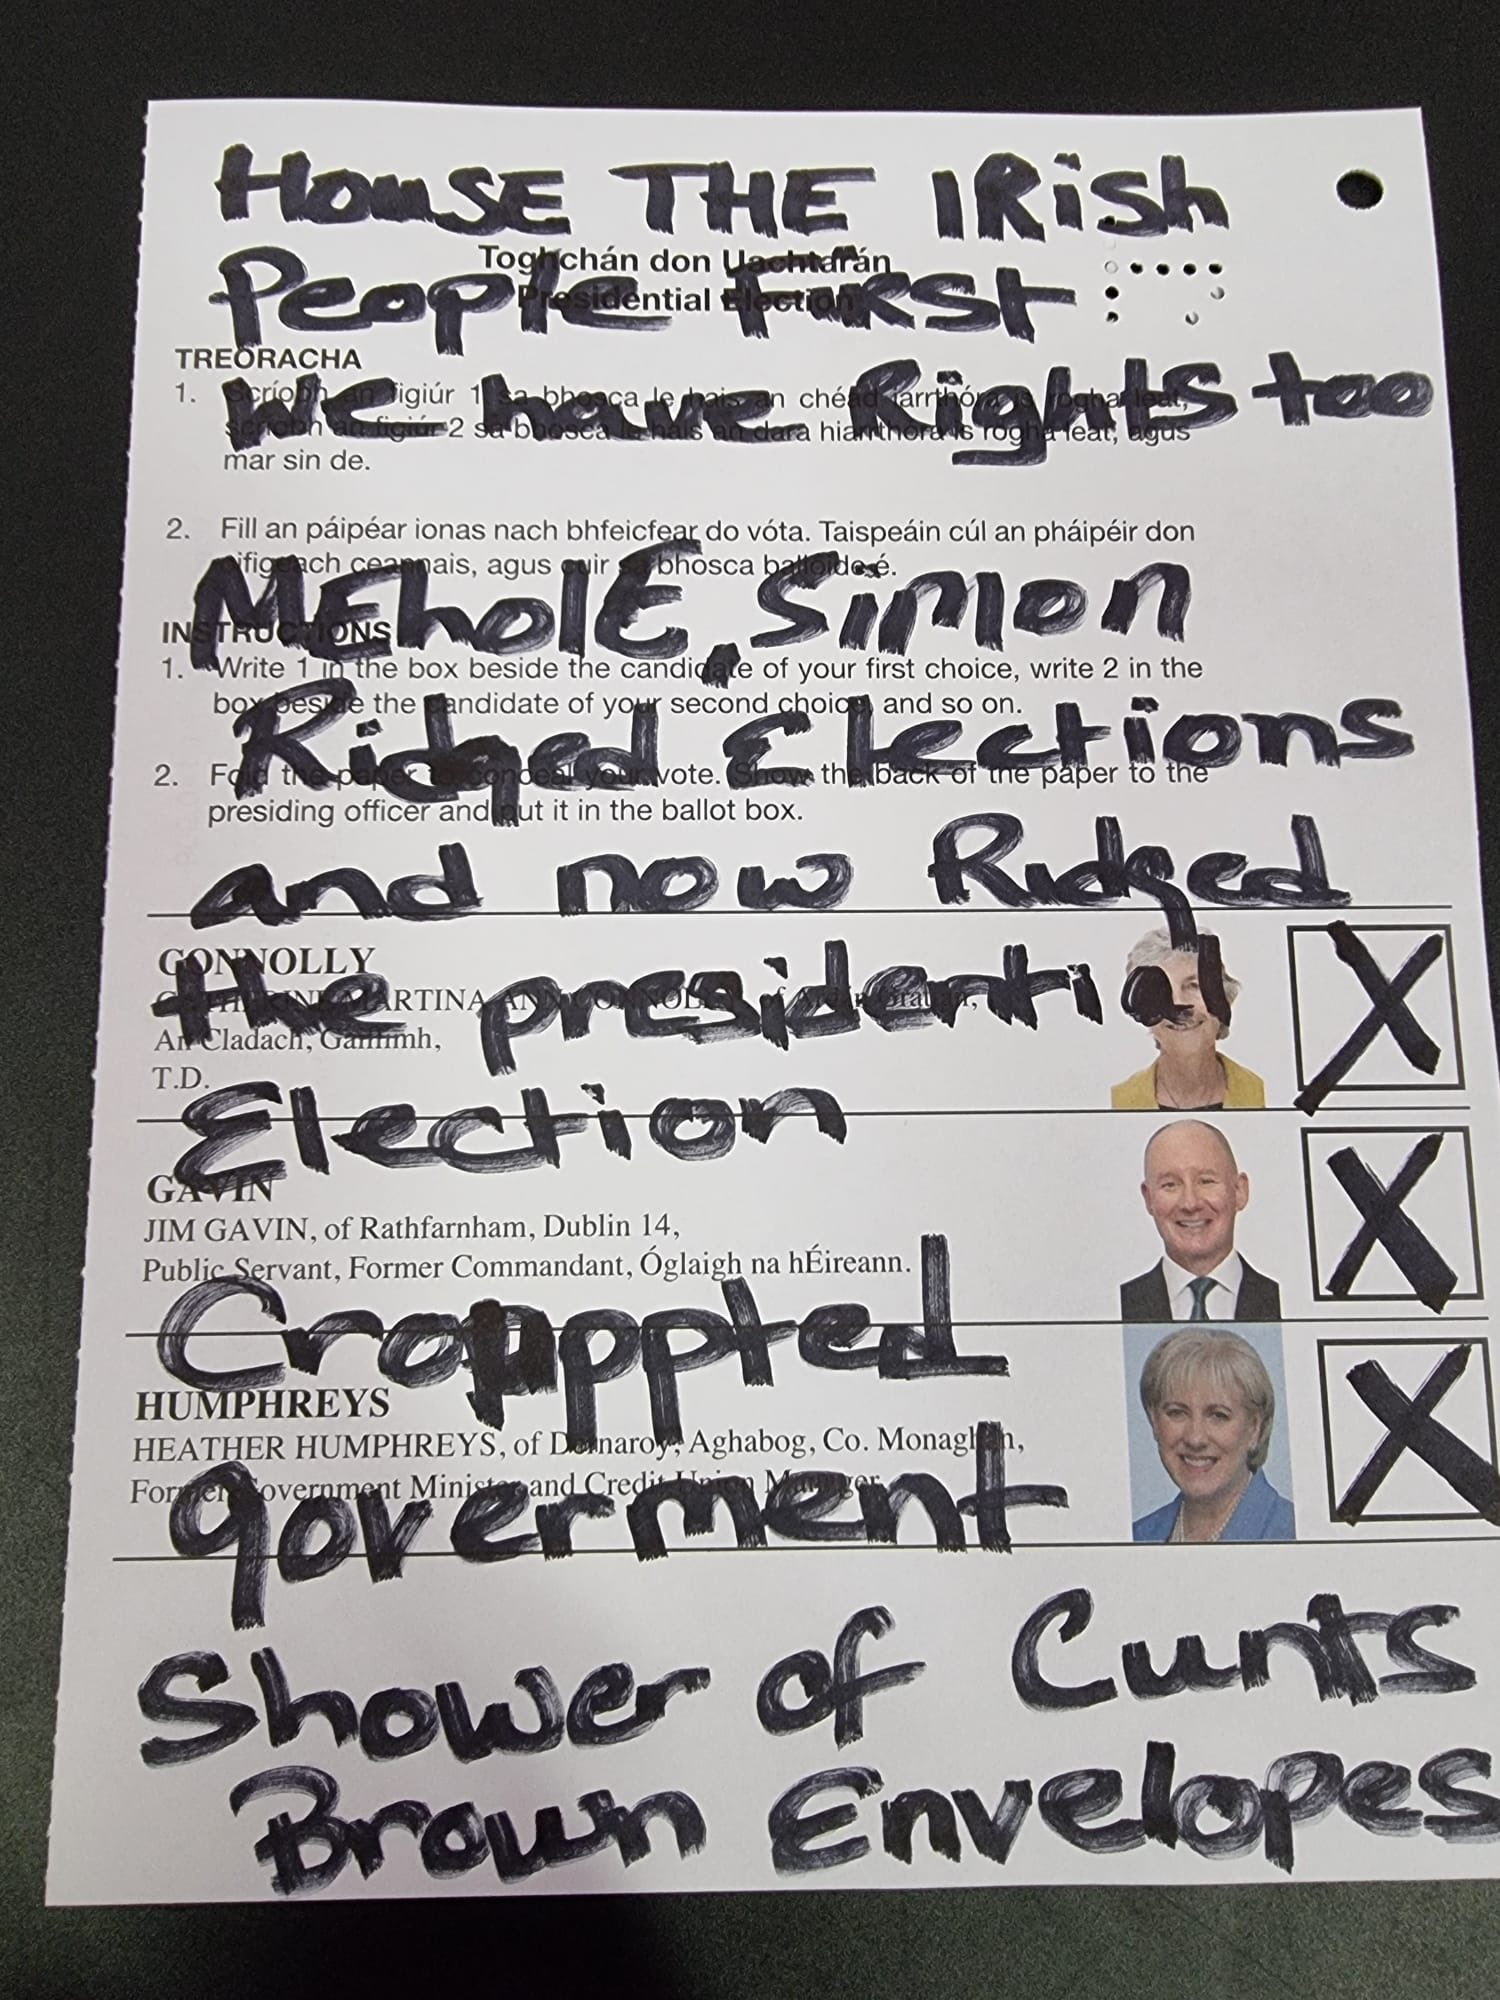 HOUSE THE IRish
Toghchán don Uachtarán
PeoplE FirSt
Presidential Election
TREORACHA
We have Rights too
1. Scríobh an figiúr 1 sa bhosca le hais an chéad iarrthóra is rogha leat,
scríobh an figiúr 2 sa bhosca le hais an dara hiarrthóra is rogha leat, agus
mar sin de.
2. Fill an páipéar ionas nach bhfeicfear do vóta. Taispeáin cúl an pháipéir don
oifigeach ceannais, agus cuir sa bhosca ballóide é.
MEholE, Simon
INSTRUCTIONS
1. Write 1 in the box beside the candidate of your first choice, write 2 in the
box beside the candidate of your second choice, and so on.
Ridged Elections
2. Fold the paper to conceal your vote. Show the back of the paper to the
presiding officer and put it in the ballot box.
and now Ridged
CONNOLLY
the presidential
MARTINA ANN CONNOLLY, of
An Cladach, Gaillimh,
T.D.
X
Election
GAVIN
JIM GAVIN, of Rathfarnham, Dublin 14,
Public Servant, Former Commandant, Óglaigh na hÉireann.
X
Croppted
HUMPHREYS
HEATHER HUMPHREYS, of Dernaroy, Aghabog, Co. Monaghan,
Former Government Minister and Credit Union Manager.
X
goverment
Shower of Cunts
Brown Envelopes